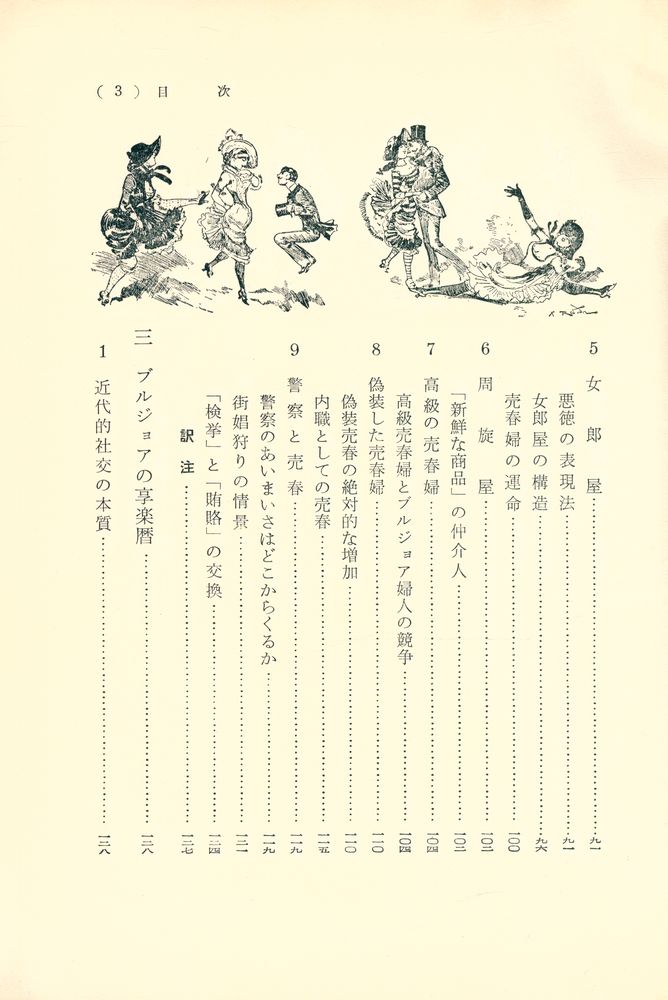 (3) 目 次
5 女郎屋……九一
悪徳の表現法……九一
女郎屋の構造……九六
売春婦の運命……一〇〇
6 周旋屋……一〇二
「新鮮な商品」の仲介人……一〇二
7 高級の売春婦……一〇四
高級売春婦とブルジョア婦人の競争……一〇四
8 偽装した売春婦……一一〇
偽装売春の絶対的な増加……一一〇
内職としての売春……一一五
9 警察と売春……一一九
警察のあいまいさはどこからくるか……一一九
街娼狩りの情景……一二一
「検挙」と「賄賂」の交換……一二四
訳注……一二七
三 ブルジョアの享楽暦……一二八
1 近代的社交の本質……一二八